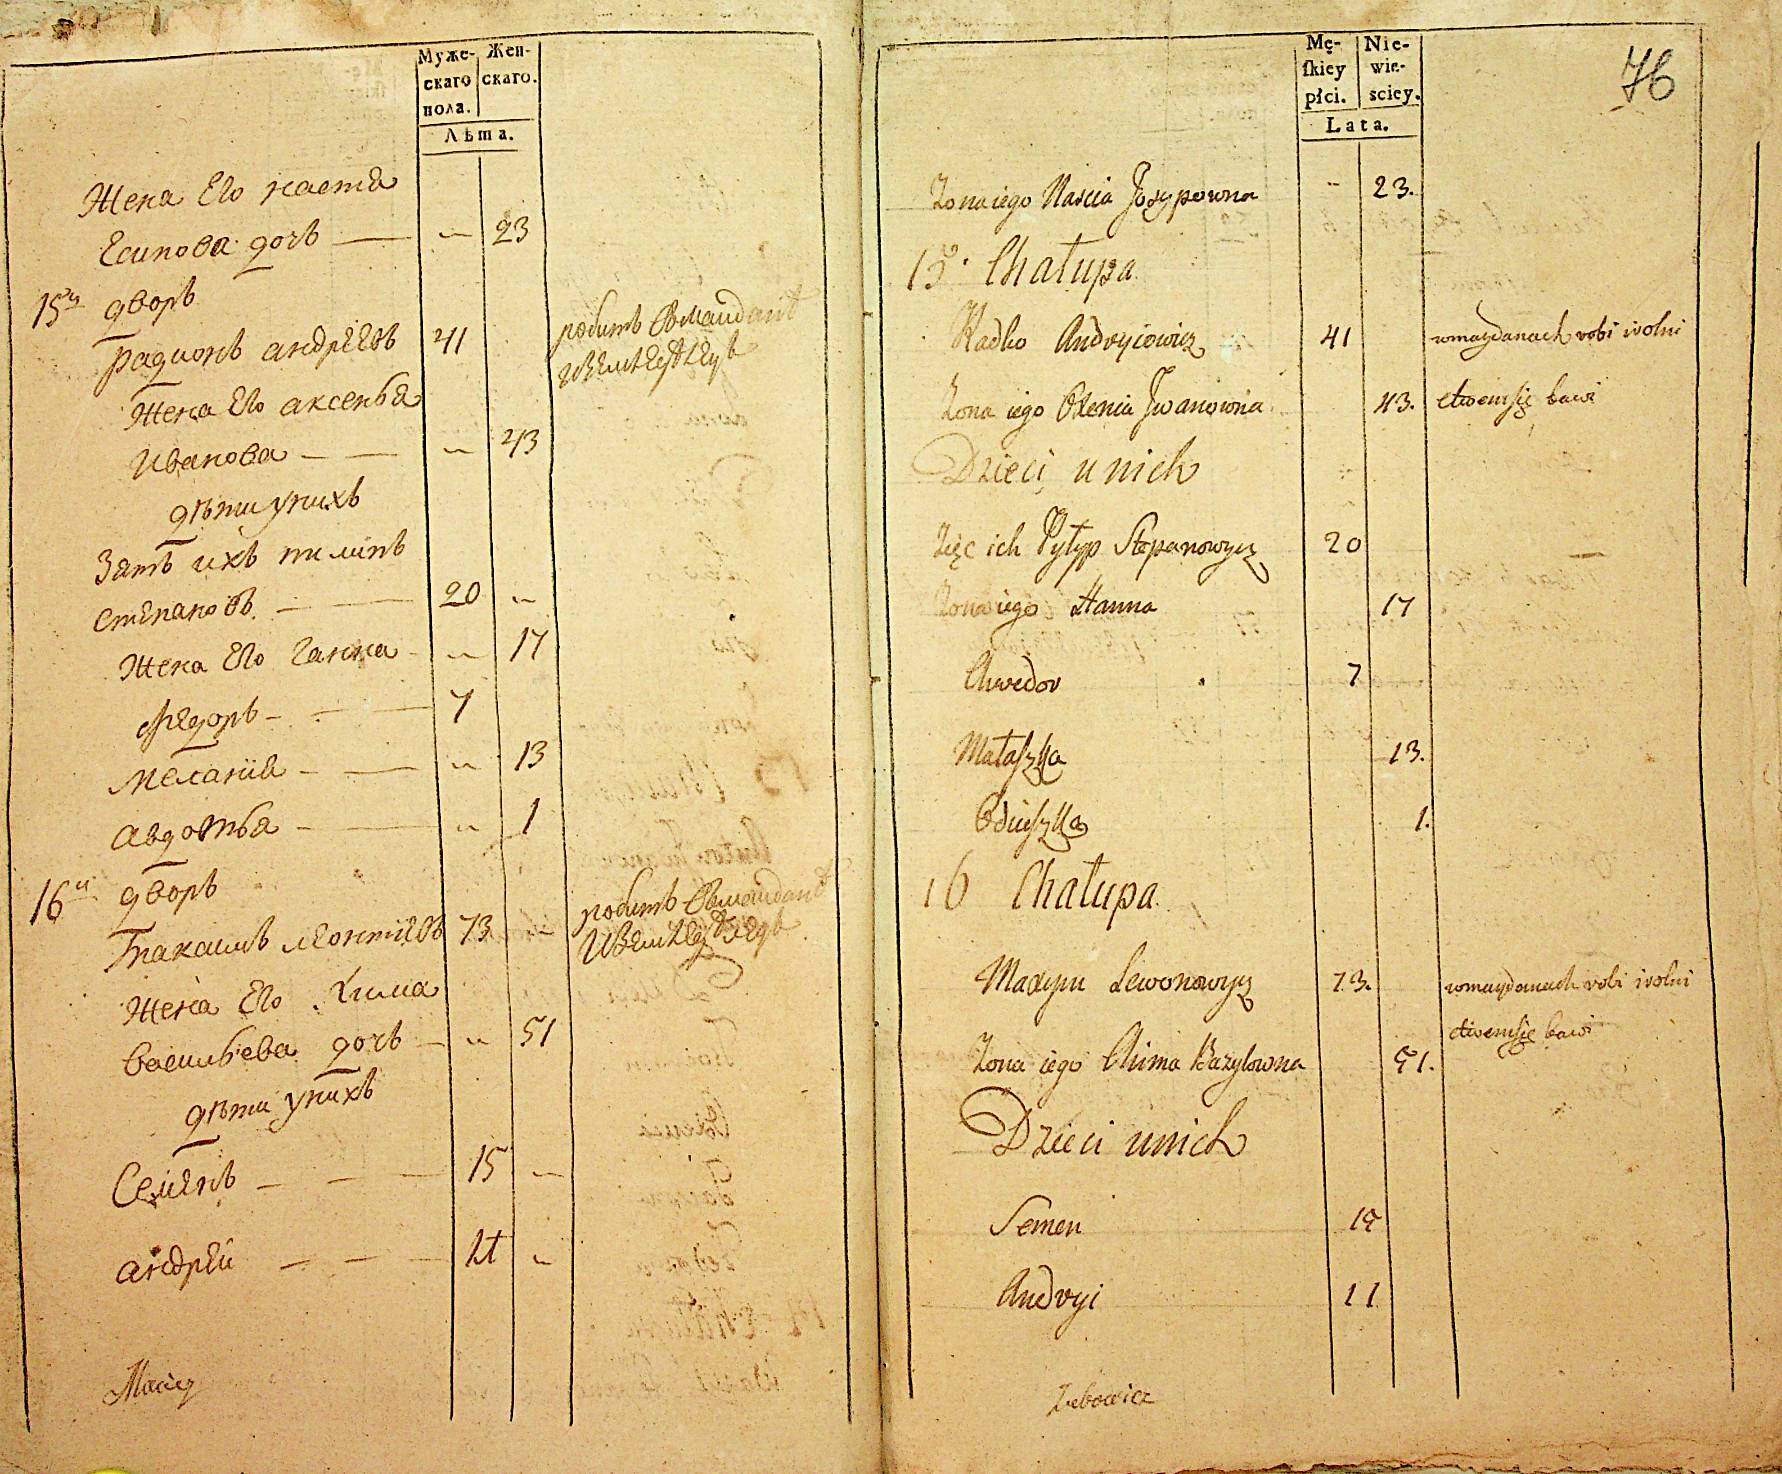 Муже-
скаго
пола.
Жен-
скаго.
Лѣта.
Жена Его настя
Есипова дочь — 23
15й дворъ
радионъ андрѣевъ 41
робитъ
Жена Его аксенья
иванова — — 43
дѣти унихъ
Зять ихъ пилипъ
степановъ — — 20
Жена Его ганна — 17
Федоръ — — 7
меланія — — 13
авдотья — — 1
16й дворъ
леонтіевъ 73
робитъ
Жена Его Хима
васильева дочь — 51
дѣти унихъ
Семенъ — — — 15
андрей — — — 11
Maciey
Mę-
skiey
płci.
Nie-
wie-
sciey.
Lata.
76
Zona iego Nascia Josypowna 23.
15. Chałupa
Radko Andryiowicz 41 wmaydanach robi irolni
Zona iego Oxenia Jwanowna 43. ctwemsię bawi
Dzieci u nich
Zięc ich Pyłyp Stepanowycz 20
Zona iego Hanna 17
Chwedor 7
Małaszka 13.
Odiuszka 1.
16 Chałupa
Maxym Lewonowycz 73. wmaydanach robi irolni
ctwemsię bawi
Zona iego Chima Bazylowna 51.
Dzieci unich
Semen 15
Andryi 11